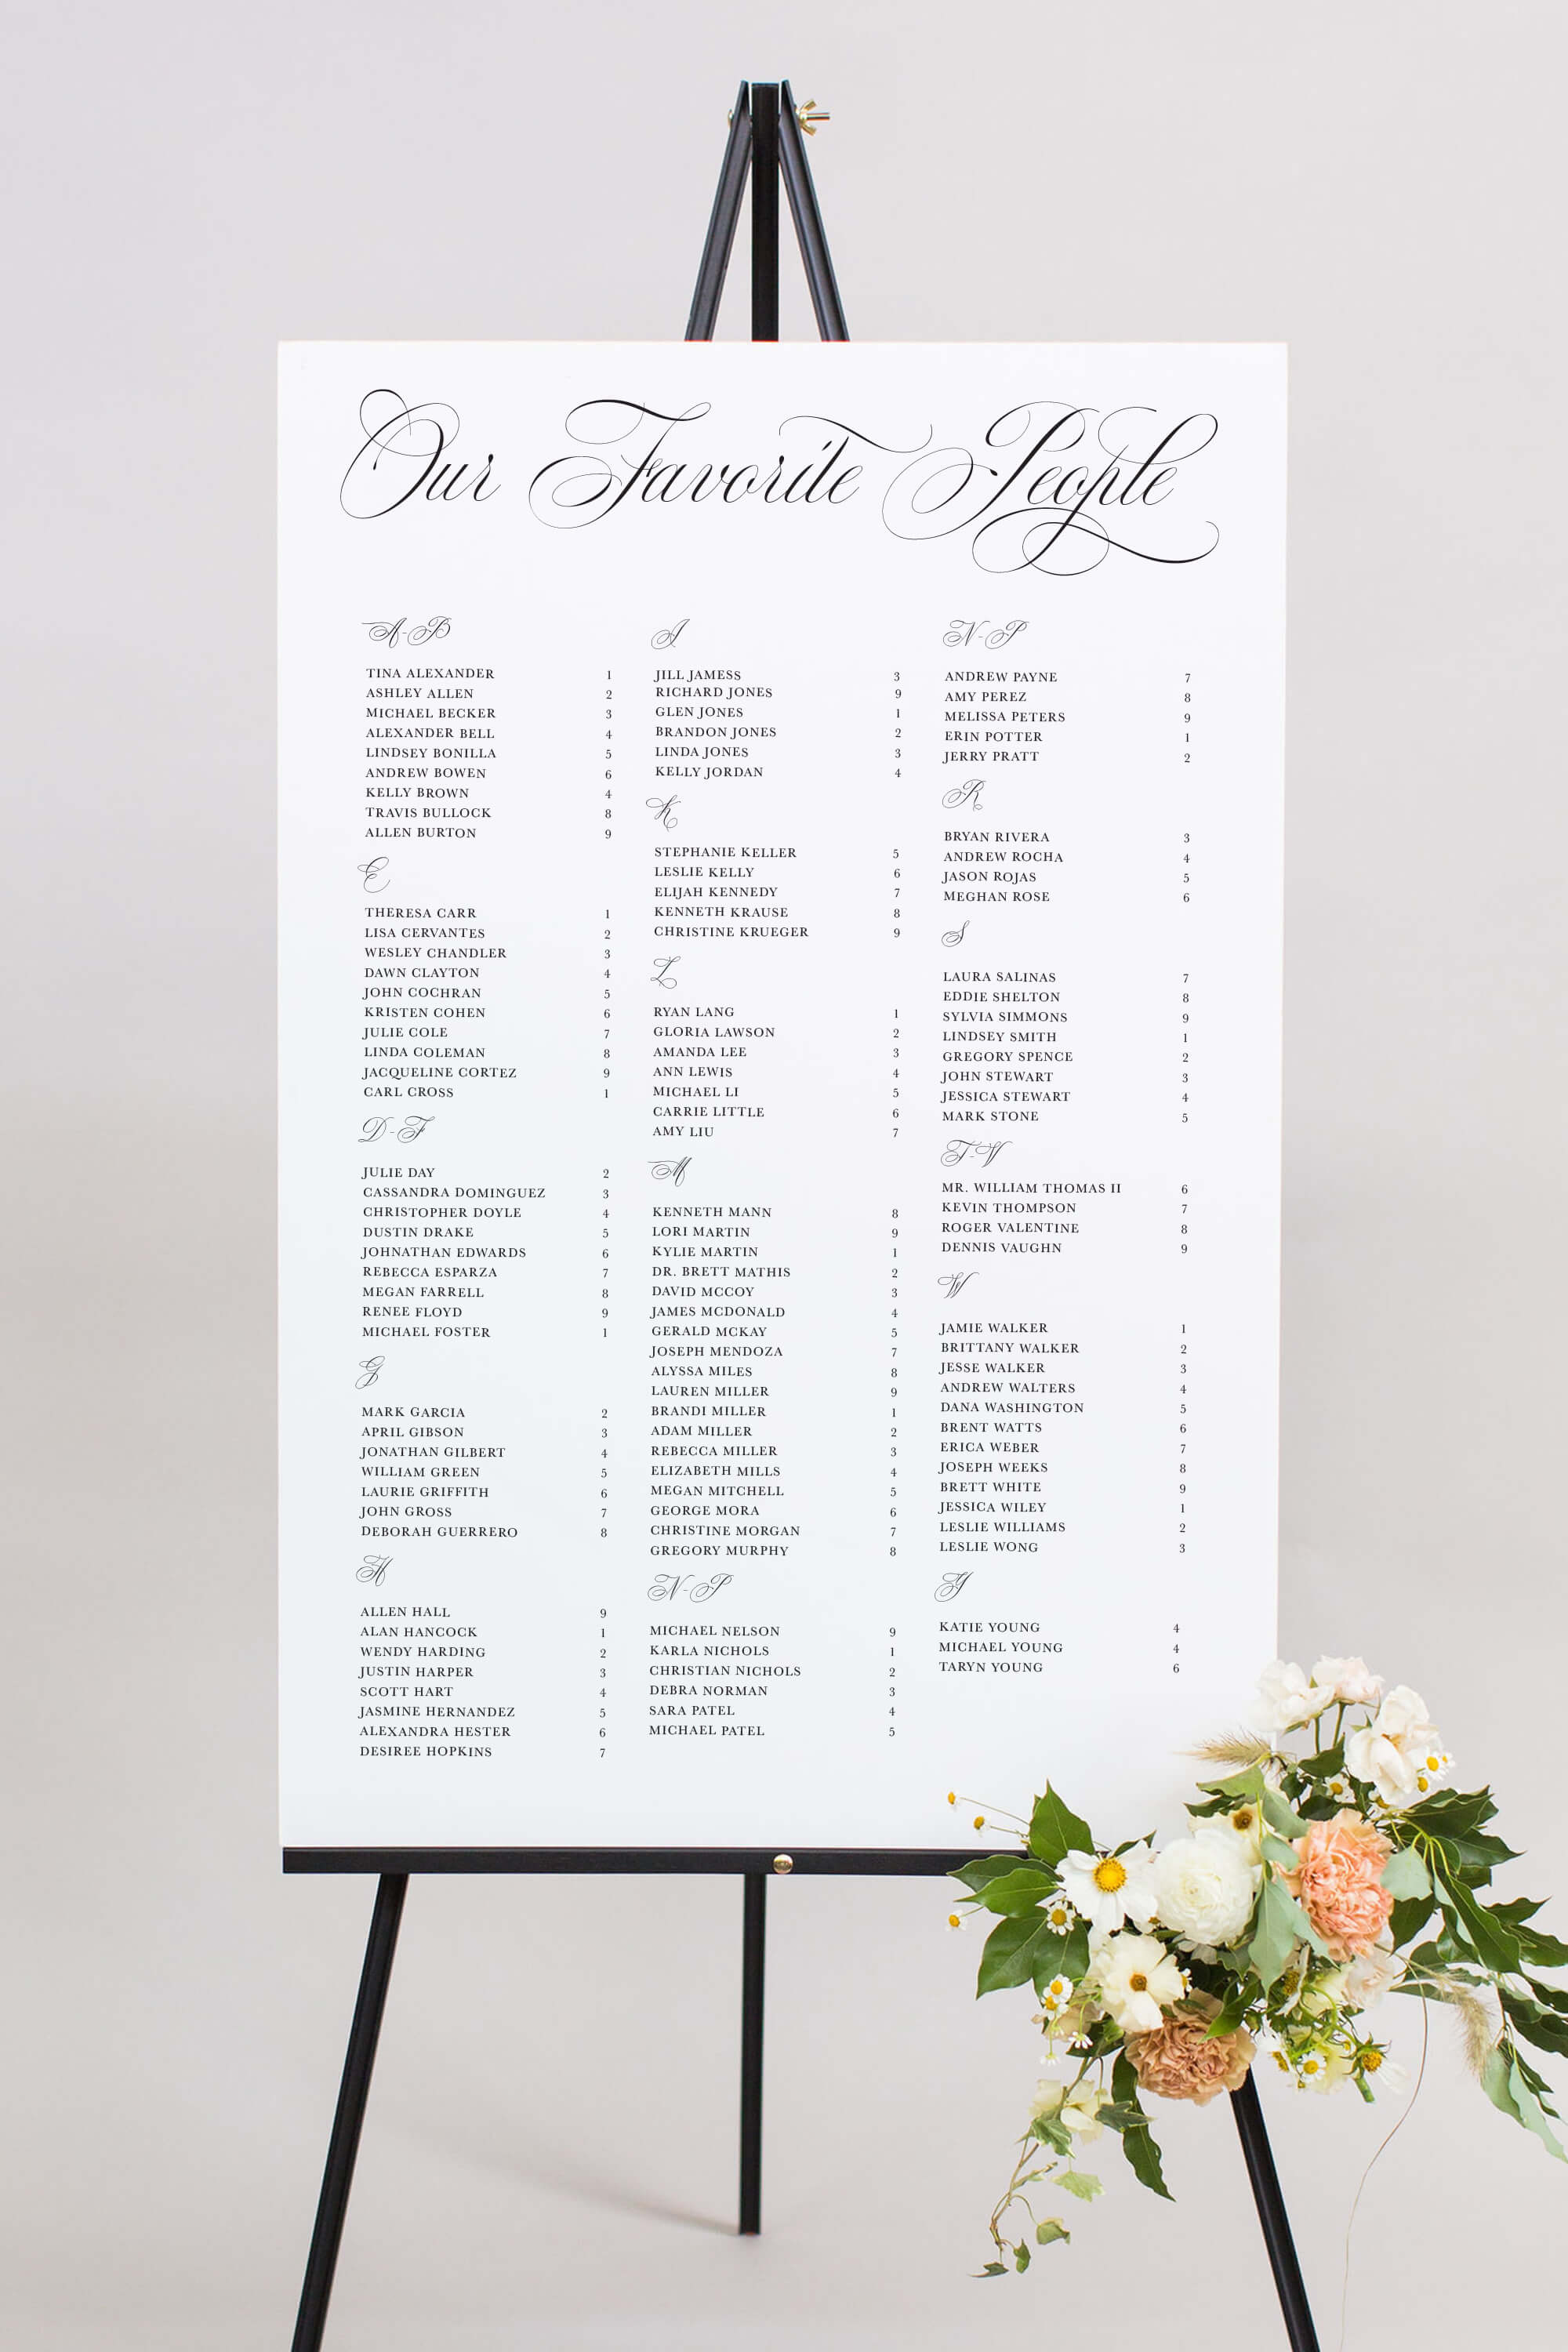 Our Favorite People
A-B
TINA ALEXANDER 1
ASHLEY ALLEN 2
MICHAEL BECKER 3
ALEXANDER BELL 4
LINDSEY BONILLA 5
ANDREW BOWEN 6
KELLY BROWN 4
TRAVIS BULLOCK 8
ALLEN BURTON 9
C
THERESA CARR 1
LISA CERVANTES 2
WESLEY CHANDLER 3
DAWN CLAYTON 4
JOHN COCHRAN 5
KRISTEN COHEN 6
JULIE COLE 7
LINDA COLEMAN 8
JACQUELINE CORTEZ 9
CARL CROSS 1
D-F
JULIE DAY 2
CASSANDRA DOMINGUEZ 3
CHRISTOPHER DOYLE 4
DUSTIN DRAKE 5
JOHNATHAN EDWARDS 6
REBECCA ESPARZA 7
MEGAN FARRELL 8
RENEE FLOYD 9
MICHAEL FOSTER 1
G
MARK GARCIA 2
APRIL GIBSON 3
JONATHAN GILBERT 4
WILLIAM GREEN 5
LAURIE GRIFFITH 6
JOHN GROSS 7
DEBORAH GUERRERO 8
H
ALLEN HALL 9
ALAN HANCOCK 1
WENDY HARDING 2
JUSTIN HARPER 3
SCOTT HART 4
JASMINE HERNANDEZ 5
ALEXANDRA HESTER 6
DESIREE HOPKINS 7
J
JILL JAMESS 3
RICHARD JONES 9
GLEN JONES 1
BRANDON JONES 2
LINDA JONES 3
KELLY JORDAN 4
K
STEPHANIE KELLER 5
LESLIE KELLY 6
ELIJAH KENNEDY 7
KENNETH KRAUSE 8
CHRISTINE KRUEGER 9
L
RYAN LANG 1
GLORIA LAWSON 2
AMANDA LEE 3
ANN LEWIS 4
MICHAEL LI 5
CARRIE LITTLE 6
AMY LIU 7
M
KENNETH MANN 8
LORI MARTIN 9
KYLIE MARTIN 1
DR. BRETT MATHIS 2
DAVID MCCOY 3
JAMES MCDONALD 4
GERALD MCKAY 5
JOSEPH MENDOZA 7
ALYSSA MILES 8
LAUREN MILLER 9
BRANDI MILLER 1
ADAM MILLER 2
REBECCA MILLER 3
ELIZABETH MILLS 4
MEGAN MITCHELL 5
GEORGE MORA 6
CHRISTINE MORGAN 7
GREGORY MURPHY 8
N-P
MICHAEL NELSON 9
KARLA NICHOLS 1
CHRISTIAN NICHOLS 2
DEBRA NORMAN 3
SARA PATEL 4
MICHAEL PATEL 5
N-P
ANDREW PAYNE 7
AMY PEREZ 8
MELISSA PETERS 9
ERIN POTTER 1
JERRY PRATT 2
R
BRYAN RIVERA 3
ANDREW ROCHA 4
JASON ROJAS 5
MEGHAN ROSE 6
S
LAURA SALINAS 7
EDDIE SHELTON 8
SYLVIA SIMMONS 9
LINDSEY SMITH 1
GREGORY SPENCE 2
JOHN STEWART 3
JESSICA STEWART 4
MARK STONE 5
T-V
MR. WILLIAM THOMAS II 6
KEVIN THOMPSON 7
ROGER VALENTINE 8
DENNIS VAUGHN 9
W
JAMIE WALKER 1
BRITTANY WALKER 2
JESSE WALKER 3
ANDREW WALTERS 4
DANA WASHINGTON 5
BRENT WATTS 6
ERICA WEBER 7
JOSEPH WEEKS 8
BRETT WHITE 9
JESSICA WILEY 1
LESLIE WILLIAMS 2
LESLIE WONG 3
Y
KATIE YOUNG 4
MICHAEL YOUNG 4
TARYN YOUNG 6